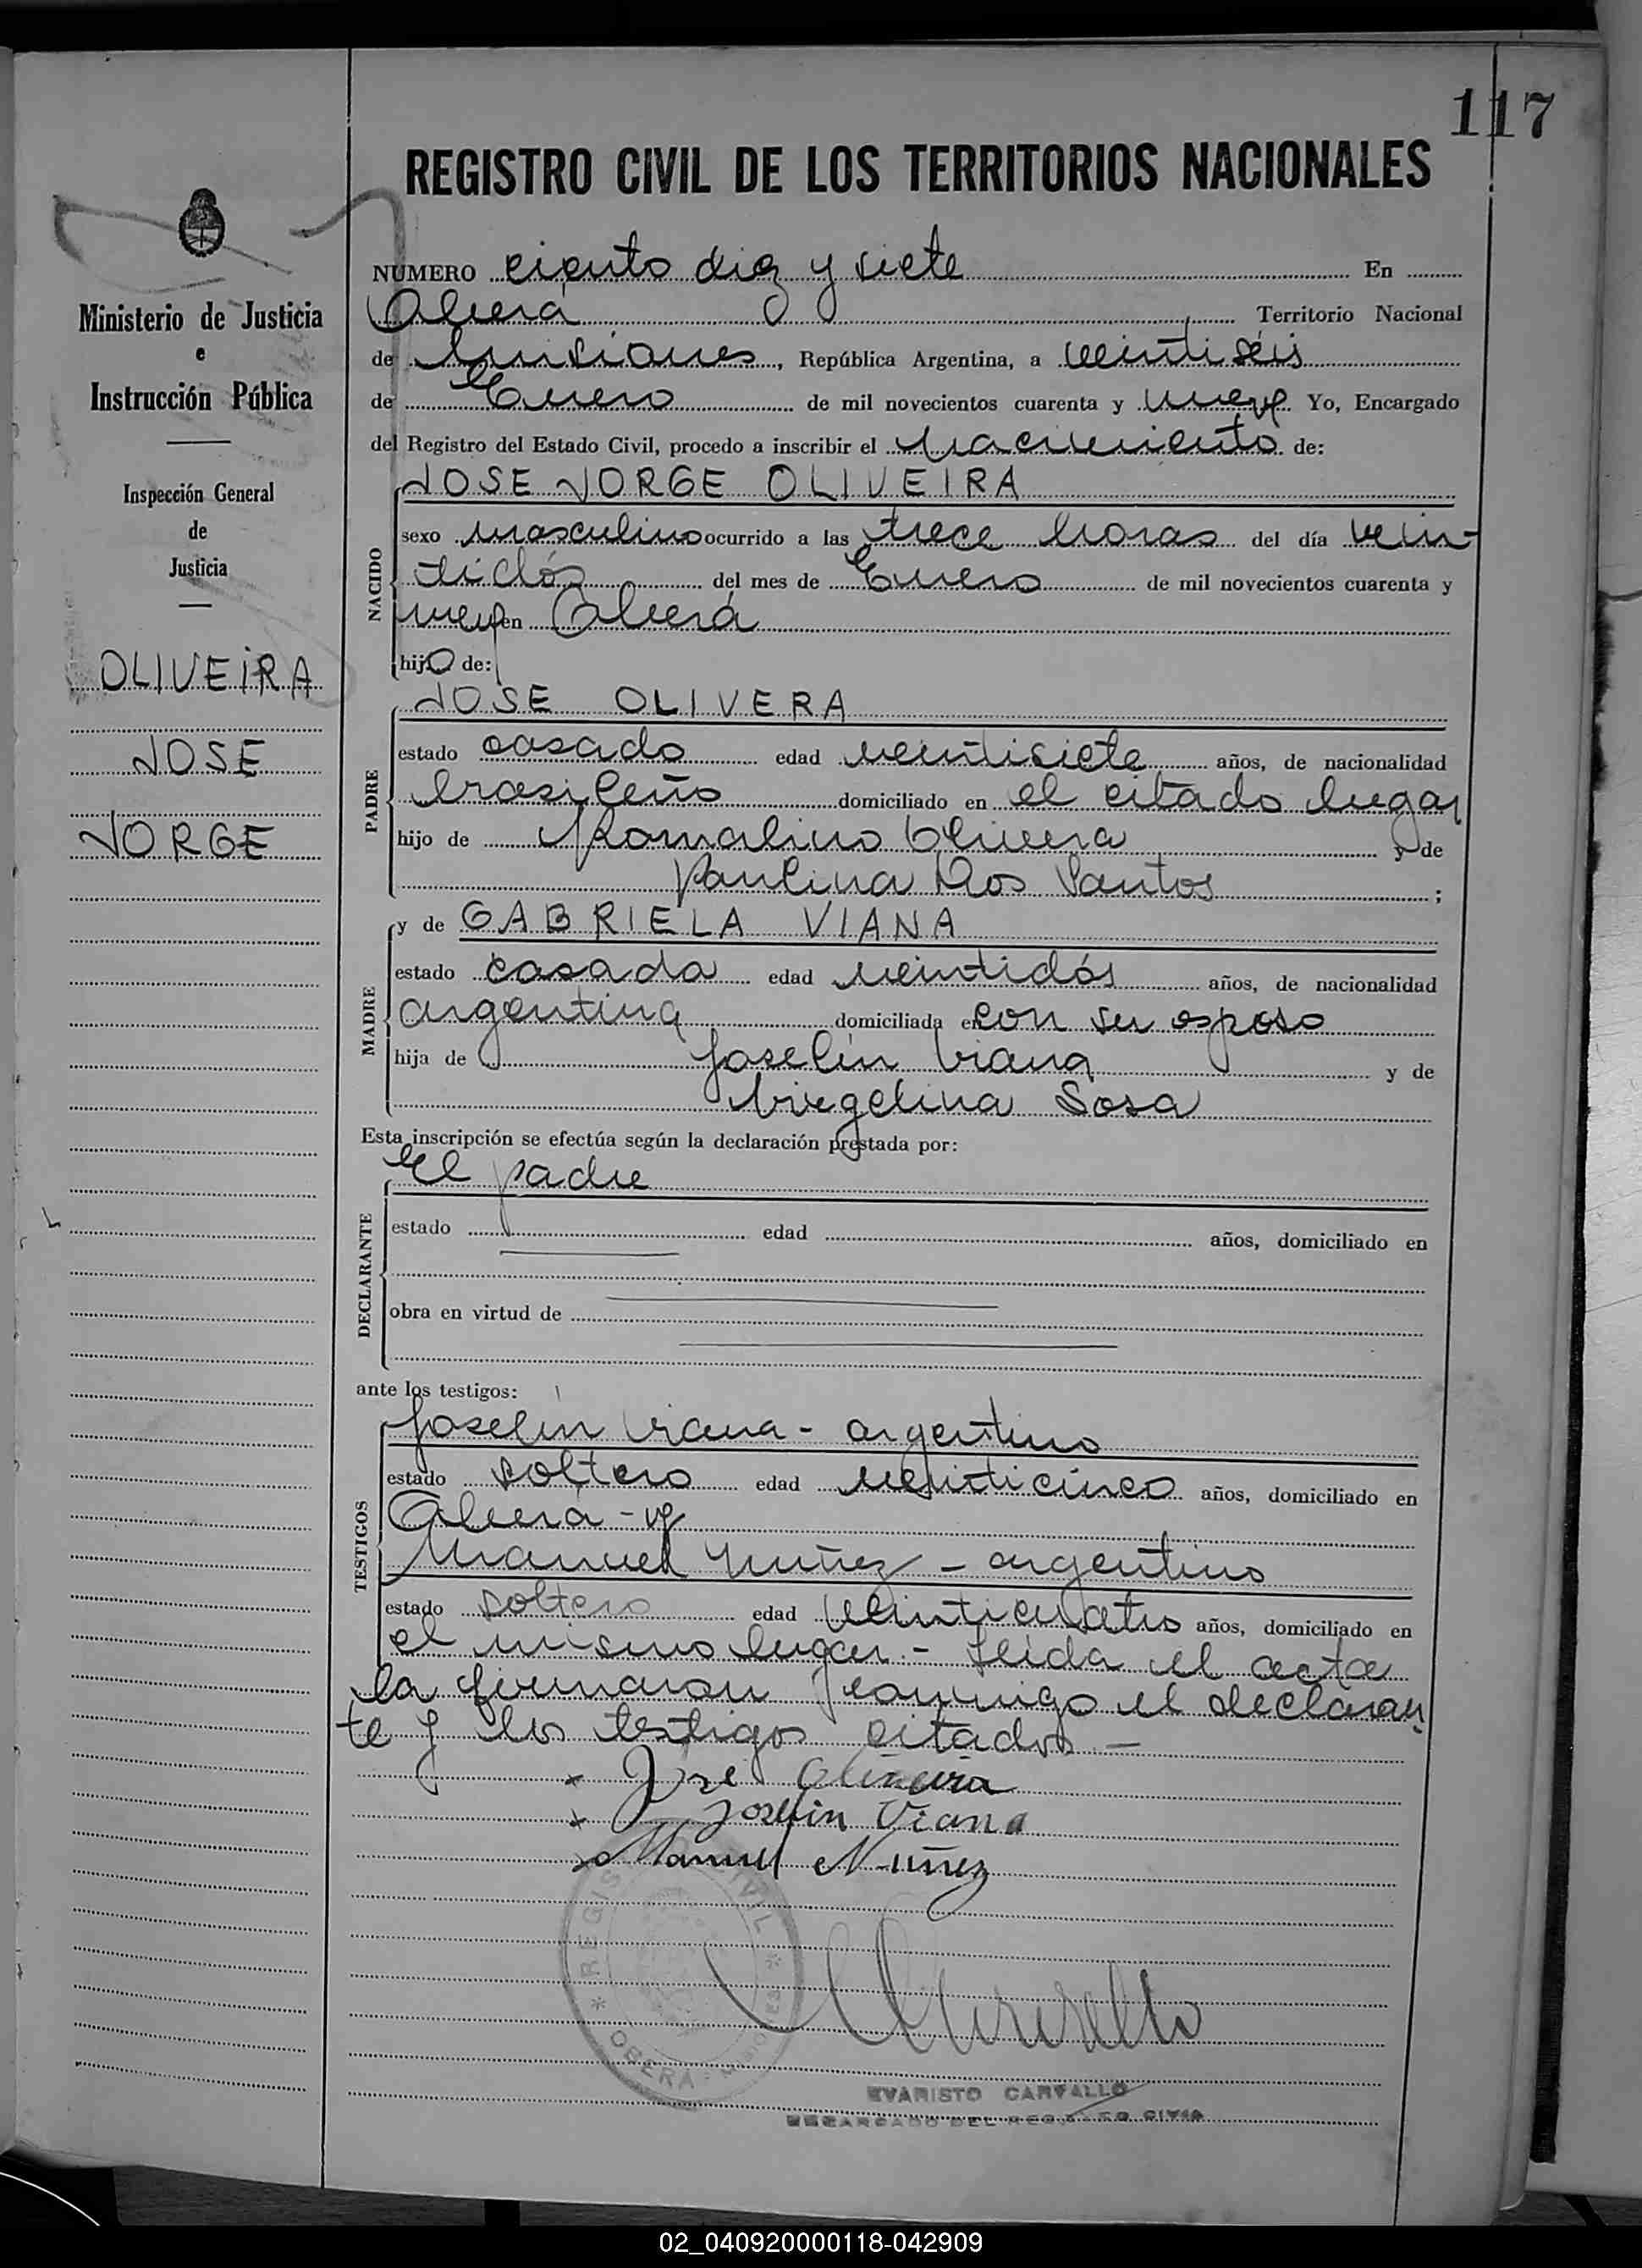 117
REGISTRO CIVIL DE LOS TERRITORIOS NACIONALES
Ministerio de Justicia
e
Instrucción Pública
Inspección General
de
Justicia
OLIVEIRA
JOSE
JORGE
NUMERO ciento diez y siete En
Oberá Territorio Nacional
de Misiones, República Argentina, a veintiséis
de Enero de mil novecientos cuarenta y nueve Yo, Encargado
del Registro del Estado Civil, procedo a inscribir el Nacimiento de:
JOSE JORGE OLIVEIRA
NACIDO
sexo masculino ocurrido a las trece horas del día vein-
tidós del mes de Enero de mil novecientos cuarenta y
nueve en Oberá
hijo de:
JOSE OLIVERA
PADRE
estado casado edad veintisiete años, de nacionalidad
brasileño domiciliado en el citado lugar
hijo de Romalino Olivera y de
Paulina Dos Santos ;
y de GABRIELA VIANA
MADRE
estado casada edad veintidós años, de nacionalidad
argentina domiciliada en con su esposo
hija de Joselín Viana y de
Virgelina Sosa
Esta inscripción se efectúa según la declaración prestada por:
El padre
DECLARANTE
estado edad años, domiciliado en
obra en virtud de
ante los testigos:
TESTIGOS
Joselín Viana - argentino
estado soltero edad veinticinco años, domiciliado en
Oberá - y
Manuel Nuñez - argentino
estado soltero edad veinticuatro años, domiciliado en
el mismo lugar.- Leida el acta
la firmaron conmigo el declaran
te y los testigos citados.-
x José Oliveira
x Joselin Viana
x Manuel Nuñez
* REGISTRO CIVIL *
OBERÁ - MISIONES
EVARISTO CARVALLO
ENCARGADO DEL REGISTRO CIVIL
02_040920000118-042909